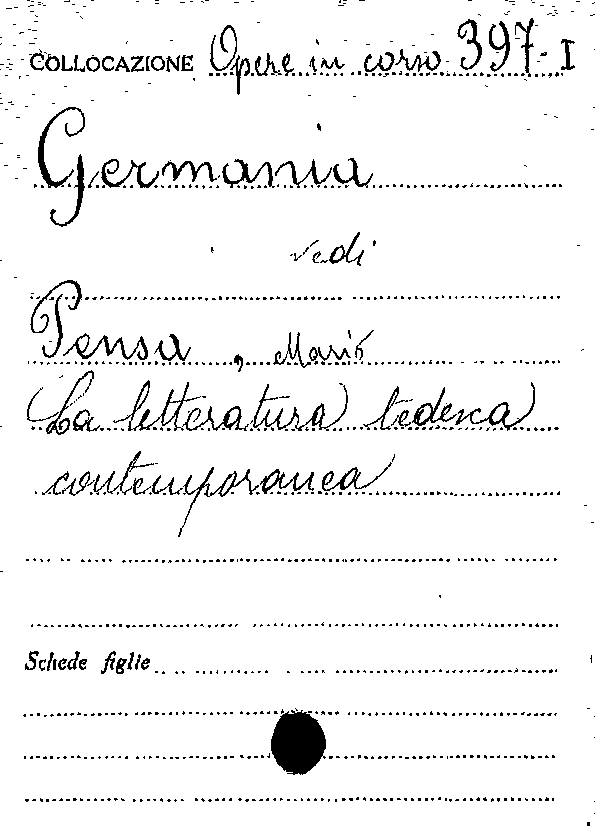 COLLOCAZIONE Opere in corso 397-I
Germania
vedi
Pensa, Mario
La letteratura tedesca
contemporanea
Schede figlie